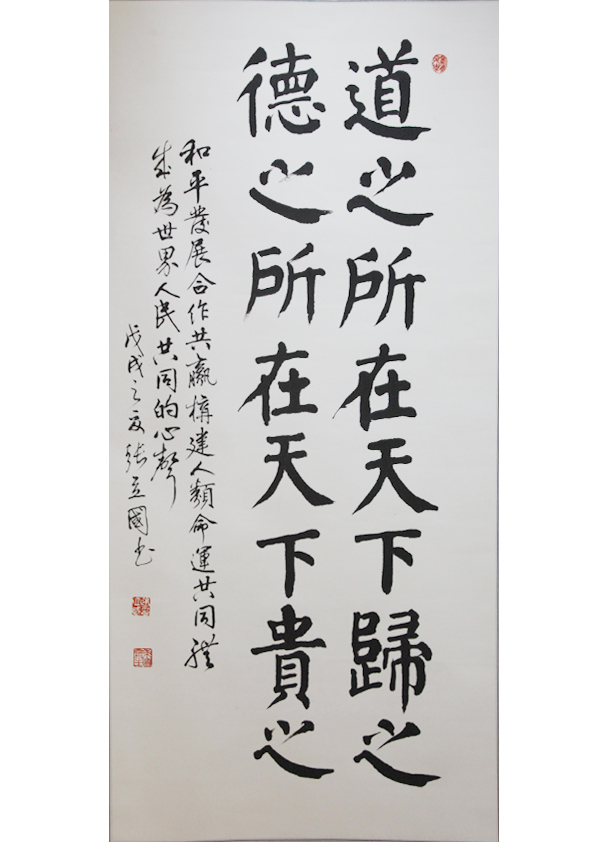 道之所在天下歸之
德之所在天下貴之
和平發展合作共贏構建人類命運共同體
成為世界人民共同的心聲
戊戌之夏張立國書